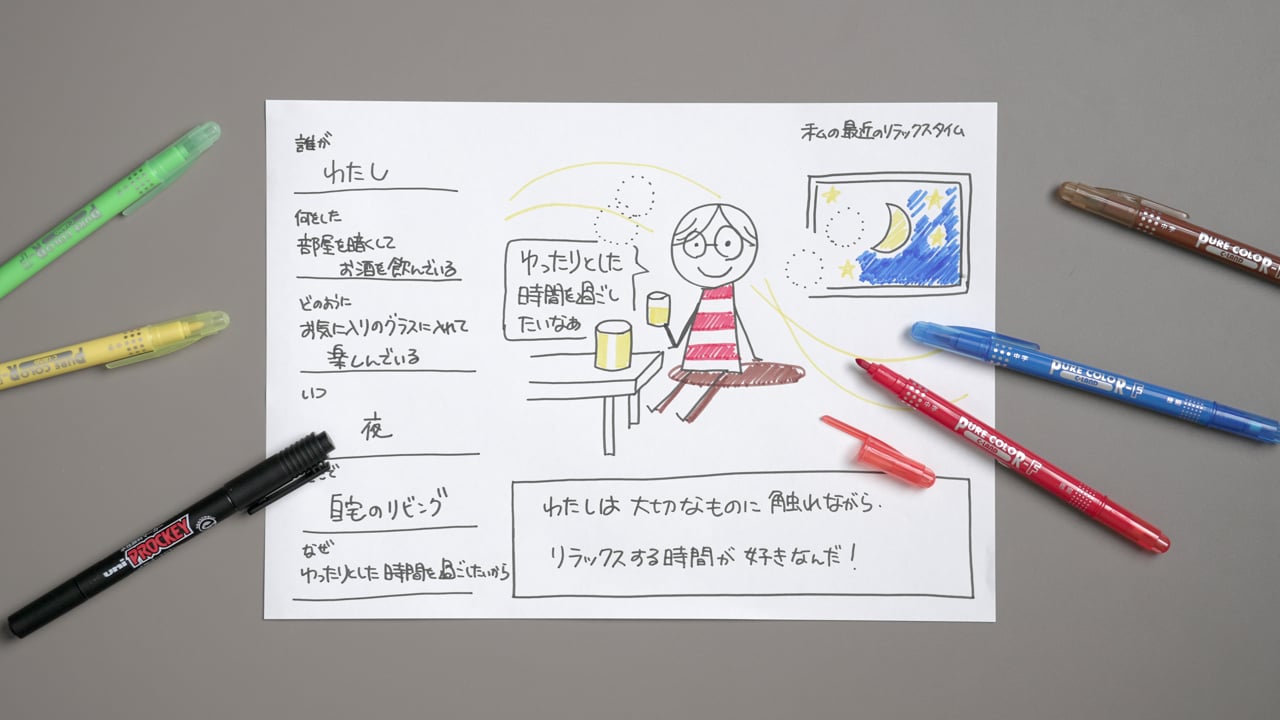 私の最近のリラックスタイム
誰が
わたし
何をした
部屋を暗くして
お酒を飲んでいる
どのように
お気に入りのグラスに入れて
楽しんでいる
いつ
夜
自宅のリビング
なぜ
ゆったりとした時間を過ごしたいから
ゆったりとした
時間を過ごし
たいなぁ
わたしは大切なものに触れながら.
リラックスする時間が好きなんだ!
uni PROCKEY
PURE COLOR-F
中字
PURE COLOR-F
中字
PURE COLOR-F
中字
PURE COLOR-F